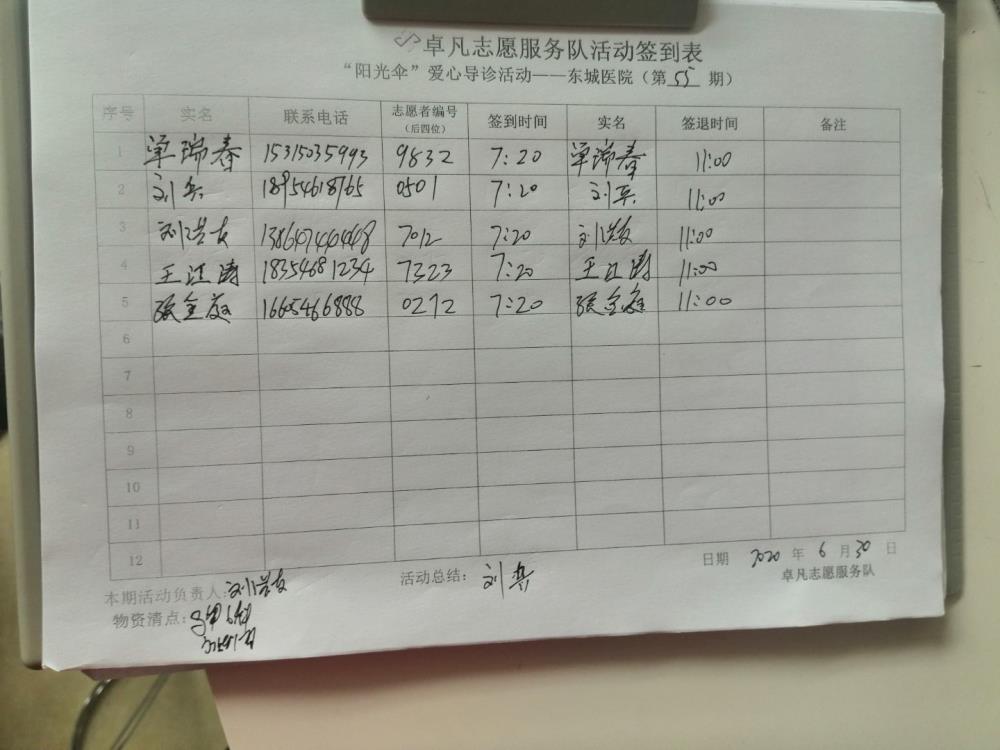 卓凡志愿服务队活动签到表
“阳光伞”爱心导诊活动——东城医院（第 55 期）
序号 实名 联系电话 志愿者编号（后四位） 签到时间 实名 签退时间 备注
1 单瑞春 15315035993 9832 7:20 单瑞春 11:00
2 刘兵 18954618765 0501 7:20 刘兵 11:00
3 刘洪友 7012 7:20 刘洪友 11:00
4 王江涛 18354681234 7323 7:20 王江涛 11:00
5 16605466888 0272 7:20 11:00
6
7
8
9
10
11
12
日期 2020 年 6 月 30 日
本期活动负责人:刘洪友 活动总结：刘兵 卓凡志愿服务队
物资清点: